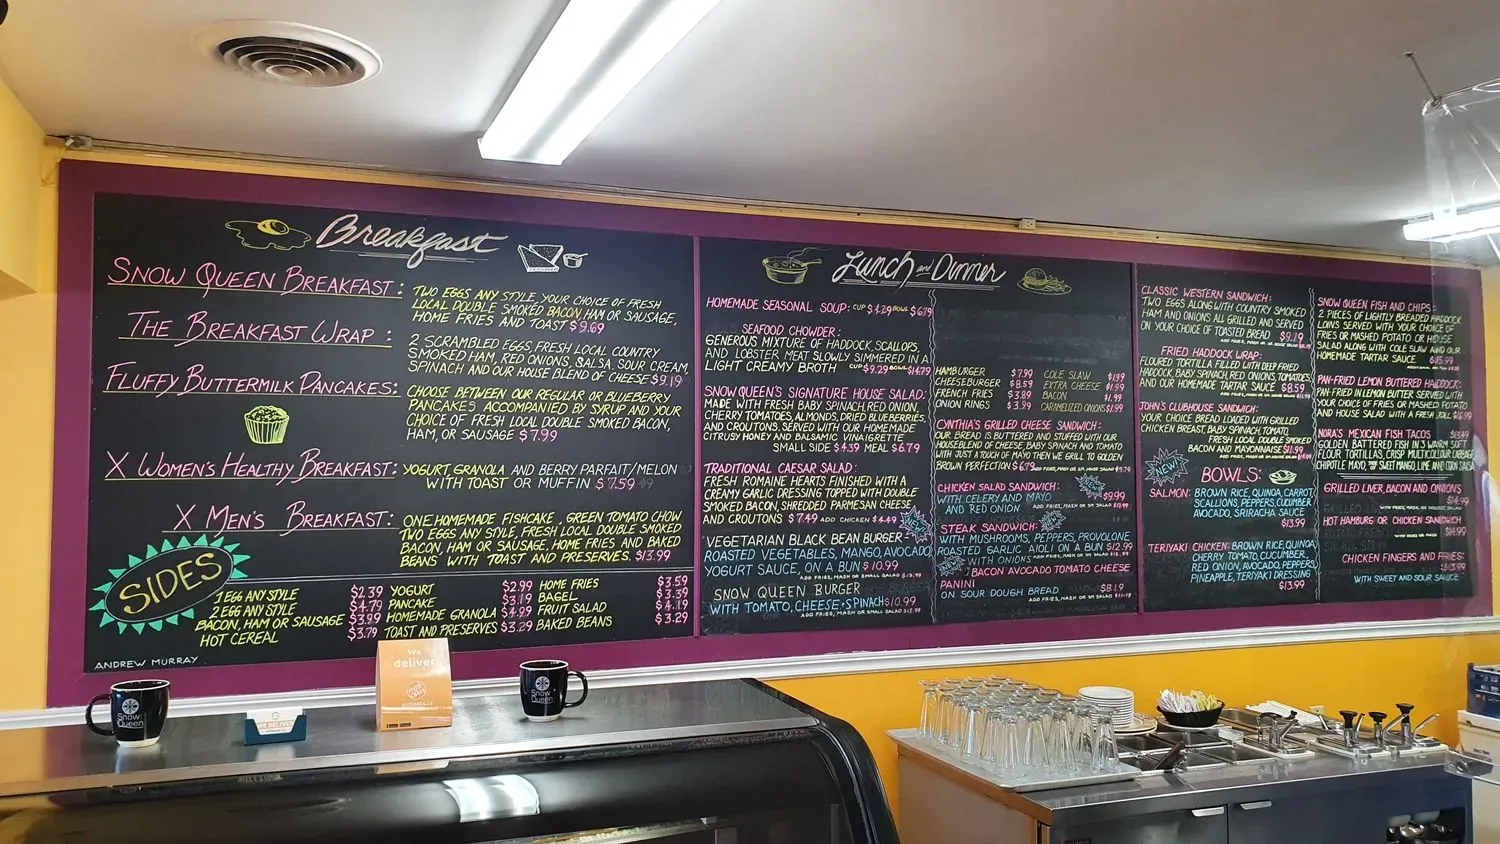 Breakfast
SNOW QUEEN BREAKFAST:
TWO EGGS ANY STYLE, YOUR CHOICE OF FRESH
LOCAL DOUBLE SMOKED BACON, HAM OR SAUSAGE,
HOME FRIES AND TOAST $9.69
THE BREAKFAST WRAP:
2 SCRAMBLED EGGS, FRESH LOCAL COUNTRY
SMOKED HAM, RED ONIONS, SALSA, SOUR CREAM,
SPINACH AND OUR HOUSE BLEND OF CHEESE $9.19
FLUFFY BUTTERMILK PANCAKES:
CHOOSE BETWEEN OUR REGULAR OR BLUEBERRY
PANCAKES ACCOMPANIED BY SYRUP AND YOUR
CHOICE OF FRESH LOCAL DOUBLE SMOKED BACON,
HAM, OR SAUSAGE $7.99
X WOMEN'S HEALTHY BREAKFAST:
YOGURT, GRANOLA AND BERRY PARFAIT/MELON
WITH TOAST OR MUFFIN $7.59
X MEN'S BREAKFAST:
ONE HOMEMADE FISHCAKE, GREEN TOMATO CHOW
TWO EGGS ANY STYLE, FRESH LOCAL DOUBLE SMOKED
BACON, HAM OR SAUSAGE, HOME FRIES AND BAKED
BEANS WITH TOAST AND PRESERVES. $13.99
SIDES
1 EGG ANY STYLE $2.39
2 EGG ANY STYLE $4.79
BACON, HAM OR SAUSAGE $3.99
HOT CEREAL $3.79
YOGURT $2.99
PANCAKE $3.19
HOMEMADE GRANOLA $4.99
TOAST AND PRESERVES $3.29
HOME FRIES $3.59
BAGEL $3.39
FRUIT SALAD $4.19
BAKED BEANS $3.29
ANDREW MURRAY
Lunch and Dinner
HOMEMADE SEASONAL SOUP: CUP $4.29 BOWL $6.79
SEAFOOD CHOWDER:
GENEROUS MIXTURE OF HADDOCK, SCALLOPS,
AND LOBSTER MEAT SLOWLY SIMMERED IN A
LIGHT CREAMY BROTH CUP $9.29 BOWL $14.79
SNOW QUEEN'S SIGNATURE HOUSE SALAD:
MADE WITH FRESH BABY SPINACH, RED ONION,
CHERRY TOMATOES, ALMONDS, DRIED BLUEBERRIES,
AND CROUTONS. SERVED WITH OUR HOMEMADE
CITRUSY HONEY AND BALSAMIC VINAIGRETTE
SMALL SIDE $4.39 MEAL $6.79
TRADITIONAL CAESAR SALAD:
FRESH ROMAINE HEARTS FINISHED WITH A
CREAMY GARLIC DRESSING TOPPED WITH DOUBLE
SMOKED BACON, SHREDDED PARMESAN CHEESE
AND CROUTONS $7.49 ADD CHICKEN $4.49
VEGETARIAN BLACK BEAN BURGER
ROASTED VEGETABLES, MANGO, AVOCADO
YOGURT SAUCE, ON A BUN $10.99
ADD FRIES, MASH OR SMALL SALAD $13.99
SNOW QUEEN BURGER
WITH TOMATO, CHEESE + SPINACH $10.99
ADD FRIES, MASH OR SMALL SALAD
HAMBURGER $7.99
CHEESEBURGER $8.59
FRENCH FRIES $3.89
ONION RINGS $3.99
COLE SLAW $1.99
EXTRA CHEESE $1.99
BACON $1.99
CARAMELIZED ONIONS $1.99
CYNTHIA'S GRILLED CHEESE SANDWICH:
OUR BREAD IS BUTTERED AND STUFFED WITH OUR
HOUSEBLEND OF CHEESE, BABY SPINACH AND TOMATO
WITH JUST A TOUCH OF MAYO THEN WE GRILL TO GOLDEN
BROWN PERFECTION $6.79 ADD FRIES, MASH OR SM HOUSE SALAD $9.79
CHICKEN SALAD SANDWICH:
WITH CELERY AND MAYO $9.99
AND RED ONION ADD FRIES, MASH OR SM SALAD
STEAK SANDWICH:
WITH MUSHROOMS, PEPPERS, PROVOLONE
ROASTED GARLIC AIOLI ON A BUN $12.99
WITH ONIONS ADD FRIES, MASH OR SM SALAD
BACON AVOCADO TOMATO CHEESE
PANINI
ON SOUR DOUGH BREAD $8.19
ADD FRIES, MASH OR SM SALAD
CLASSIC WESTERN SANDWICH:
TWO EGGS ALONG WITH COUNTRY SMOKED
HAM AND ONIONS ALL GRILLED AND SERVED
ON YOUR CHOICE OF TOASTED BREAD $9.19
FRIED HADDOCK WRAP:
FLOURED TORTILLA FILLED WITH DEEP FRIED
HADDOCK, BABY SPINACH, RED ONIONS, TOMATOES,
AND OUR HOMEMADE TARTAR SAUCE $8.59
JOHN'S CLUBHOUSE SANDWICH:
YOUR CHOICE BREAD LOADED WITH GRILLED
CHICKEN BREAST, BABY SPINACH, TOMATO,
FRESH LOCAL DOUBLE SMOKED
BACON AND MAYONNAISE $11.99
NEW!
BOWLS:
SALMON: BROWN RICE, QUINOA, CARROT
SCALLIONS, PEPPERS, CUCUMBER
AVOCADO, SRIRACHA SAUCE
$13.99
TERIYAKI CHICKEN: BROWN RICE, QUINOA,
CHERRY TOMATO, CUCUMBER,
RED ONION, AVOCADO, PEPPERS,
PINEAPPLE, TERIYAKI DRESSING
$13.99
SNOW QUEEN FISH AND CHIPS:
2 PIECES OF LIGHTLY BREADED HADDOCK
LOINS SERVED WITH YOUR CHOICE OF
FRIES OR MASHED POTATO OR HOUSE
SALAD ALONG WITH COLE SLAW AND OUR
HOMEMADE TARTAR SAUCE
PAN-FRIED LEMON BUTTERED HADDOCK:
PAN-FRIED IN LEMON BUTTER SERVED WITH
YOUR CHOICE OF FRIES OR MASHED POTATO
AND HOUSE SALAD WITH A FRESH ROLL
NORA'S MEXICAN FISH TACOS
GOLDEN BATTERED FISH IN 3 WARM SOFT
FLOUR TORTILLAS, CRISP MULTICOLOUR CABBAGE
CHIPOTLE MAYO, SWEET MANGO, LIME AND CORN SALSA
GRILLED LIVER, BACON AND ONIONS
WITH FRIES, MASH OR HOUSE SALAD
HOT HAMBURG OR CHICKEN SANDWICH
CHICKEN FINGERS AND FRIES:
WITH SWEET AND SOUR SAUCE
We
deliver
Snow
Queen
WE DELIVER
Snow
Queen